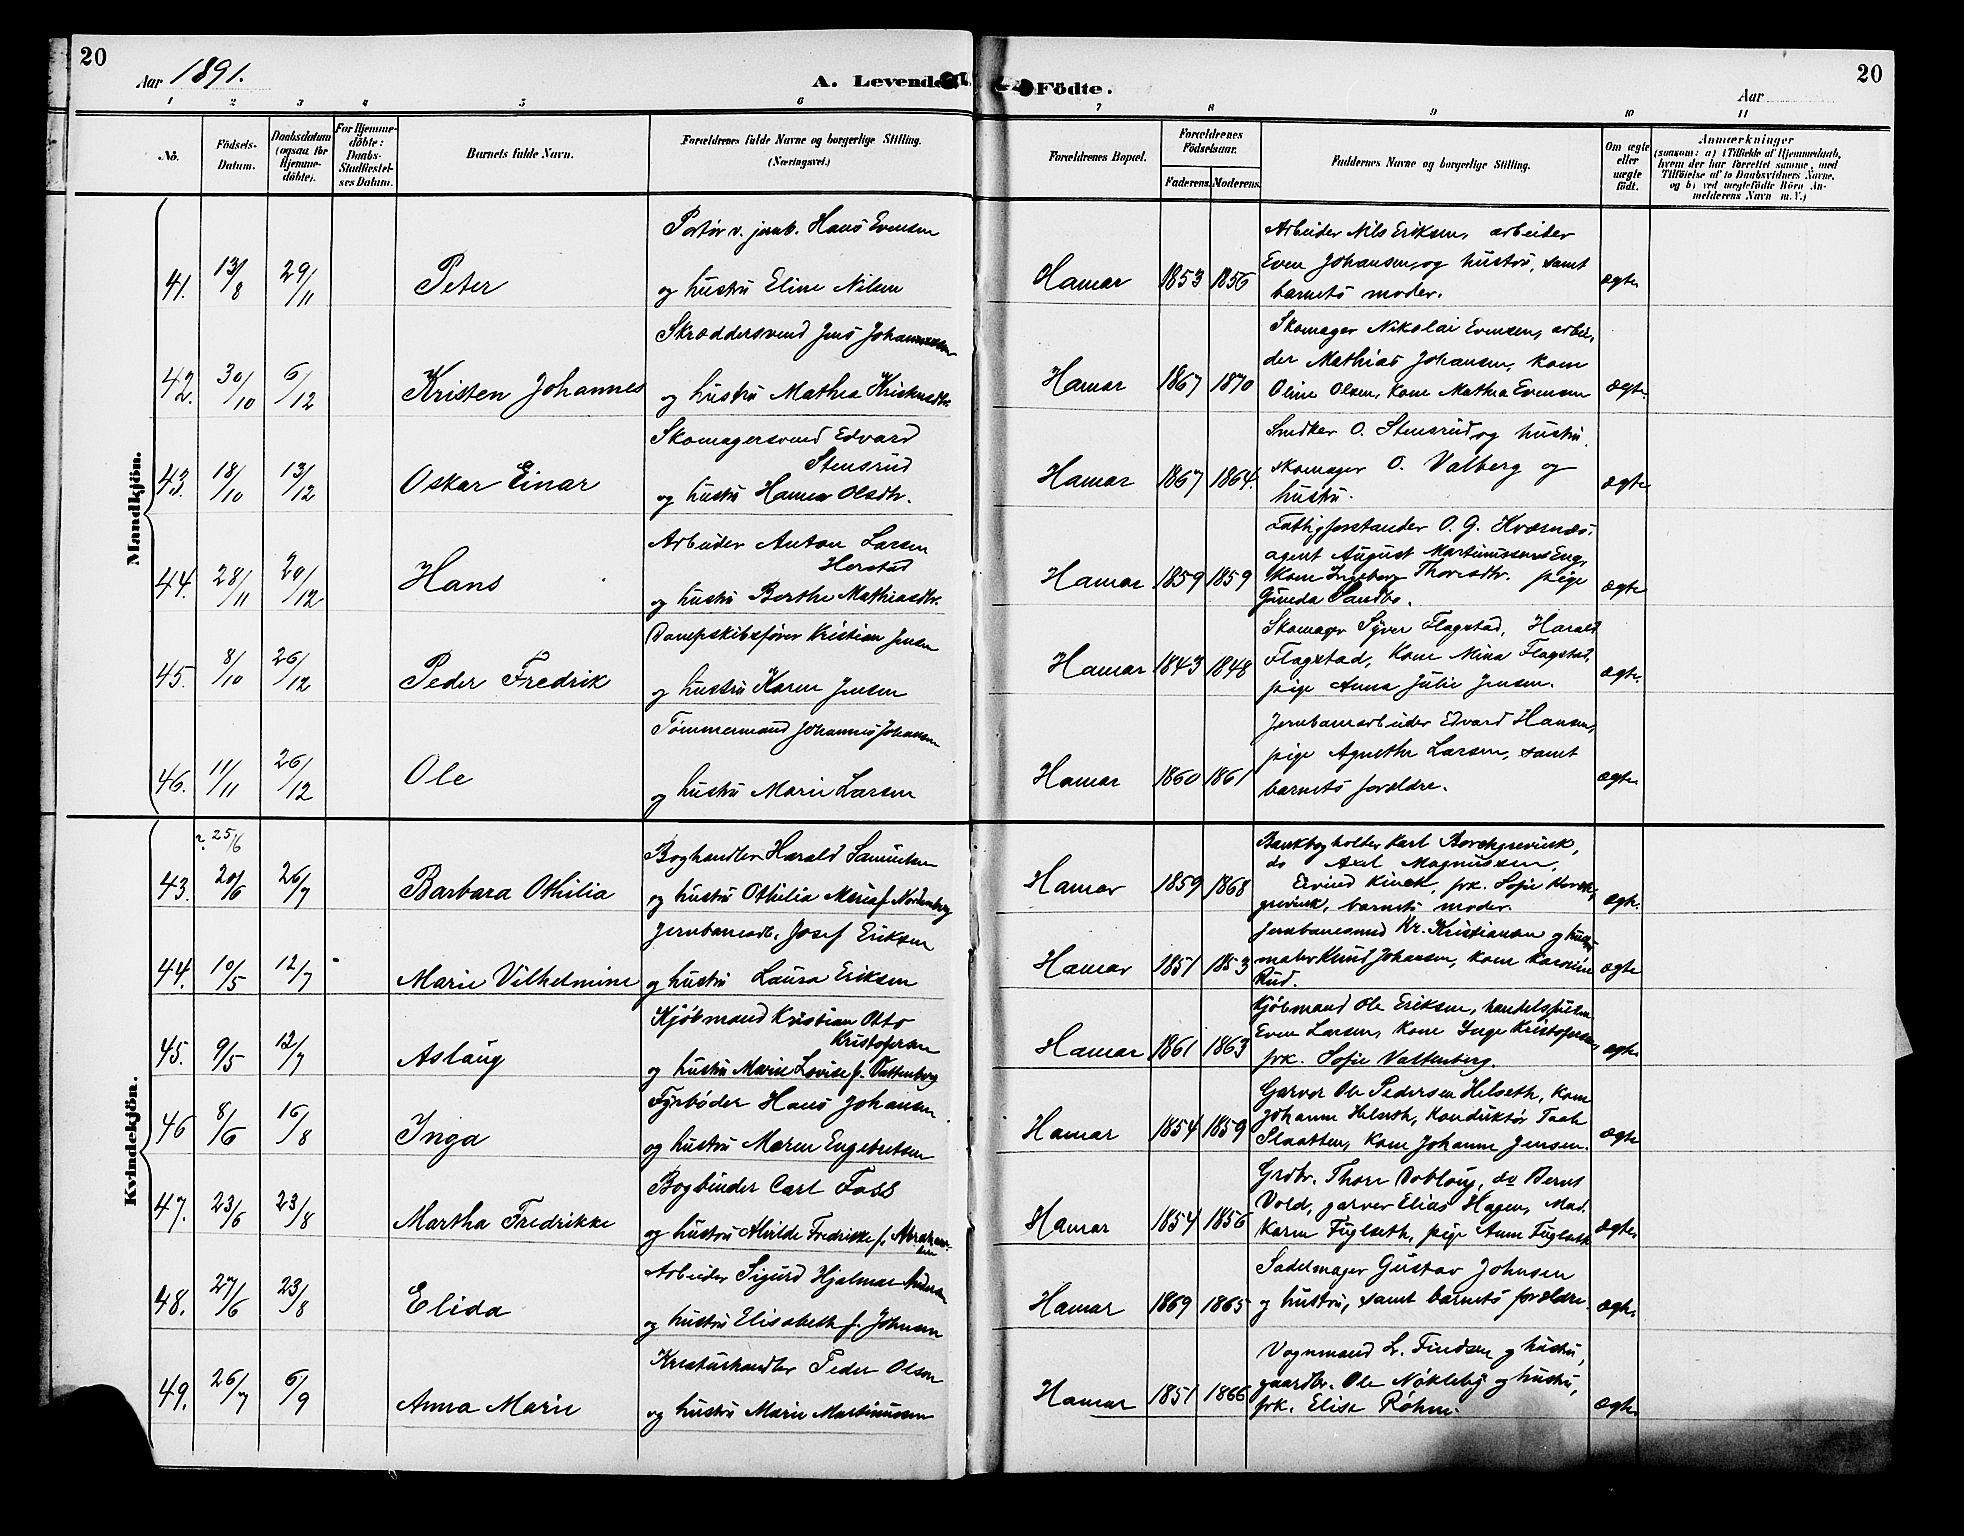 20
Aar 1891.
A. Levende Födte.
20
Aar
1 2 3 4 5 6 7 8 9 10 11
No.
Födsels-
Datum.
Daabsdatum
(ogsaa for
Hjemme-
döbte).
For Hjemme-
döbte:
Daabs-
Stadfæstel-
ses Datum.
Barnets fulde Navn.
Forældrenes fulde Navne og borgerlige Stilling.
(Næringsvei.)
Forældrenes Bopæl.
Forældrenes
Födselsaar.
Faderens. Moderens.
Faddernes Navne og borgerlige Stilling.
Om ægte
eller
uægte
födt.
Anmærkninger
(saasom: a) i Tilfælde af Hjemmedaab,
hvem der har forrettet samme, med
Tilföielse af to Daabsvidners Navne,
og b) ved uægtefödte Börn An-
melderens Navn m. V.)
Mandkjön.
Portør v. jernb. Hans Evensen
41. 13/8 29/11 Peter og hustru Eline Nilsen
Hamar 1853 1856
Arbeider Nils Eriksen, arbeider
Even Johansen og hustru, samt
barnets moder.
ægte
Skræddersvend Jens Johannessen
42. 30/10 6/12 Kristen Johannes og hustru Mathea Kristensdtr.
Hamar 1867 1870
Skomager Nikolai Evensen, arbei-
der Mathias Johansen, kone
Oline Olsen, kone Mathea Evensen
ægte
Skomagersvend Edvard
Stensrud
43. 18/10 13/12 Oskar Einar og hustru Hanna Olsdtr.
Hamar 1867 1864.
Snedker O. Stensrud og hustru,
skomager O. Valberg og
hustru.
ægte
Arbeider Anton Larsen
Herstad
44. 28/11 20/12 Hans og hustru Berthe Mathiasdtr.
Hamar 1859 1859
Fattigforstander O. G. Kværnæs,
agent August Martinussens Eng,
kone Ingeborg Thoresdtr. pige
Sandbo.
ægte
Dampskibsfører Kristian Jensen
45. 8/10 26/12 Peder Fredrik og hustru Karen Jensen
Hamar 1843 1848
Skomager Syver Flagstad, Harald
Flagstad, kone Mina Flagstad,
pige Anna Julie Jensen.
ægte.
Tømmermand Johannes Johansen
46. 11/11 26/12 Ole og hustru Marie Larsen
Hamar 1860 1861
Jernbanearbeider Edvard Hansen,
pige Agnethe Larsen, samt
barnets forældre.
ægte
Kvindekjön.
?. 25/6
Boghandler Harald Samuelsen
43. 20/6 26/7 Barbara Othilia og hustru Othilia Maria f. Nordenborg
Hamar 1859 1868
Bankbogholder Karl Borchgrevink,
do Axel Magnussen,
Eivind Kinck, frk. Sofie Borch-
grevink, barnets moder.
ægte.
Jernbanearb. Josef Eriksen
44. 10/5 12/7 Marie Vilhelmine og hustru Laura Eriksen
Hamar 1851 1853
Jernbanesmed Kr. Kristiansen og hustru
maler Knud Johansen, kone Karoline
Rud.
ægte
Kjøbmand Kristian Otto
Kristofersen
45. 9/5 12/7 Aslaug og hustru Marie Lovise f. Vattenberg
Hamar 1861 1863
Kjøbmand Ole Eriksen, handelsfuldm.
Even Larsen, kone Inga Kristofersen,
frk. Sofie Vattenberg.
ægte
Fyrbøder Hans Johansen
46 8/6 16/8 Inga og hustru Maren Engebretsen
Hamar 1854 1859
Garver Ole Pedersen Helseth, kone
Johanne Helseth, konduktør
Slaatten, kone Johanne Jensen.
ægte
Bogbinder Carl Foss
47. 23/6 23/8 Martha Fredrikke og hustru Alvilde Fredrikke f. Abraham-
sen
Hamar 1854 1856
Grdbr. Thore Dobloug, do Bernt
Vold, garver Elias Hagen, Mad.
Karen Fuglseth, pige Anne Fuglseth
ægte.
Arbeider Sigurd Hjalmar Andersen
48. 27/6 23/8 Elida og hustru Elisabeth f. Johnsen
Hamar 1869 1865
Sadelmager Gustav Johnsen
og hustru, samt barnets forældre.
ægte.
Kreaturhandler Peder Olsen
49. 26/7 6/9 Anna Marie og hustru Marie Martinussen
Hamar 1851 1866
Vognmand L. Findsen og hustru,
gaardbr. Ole Nøkleby og hustru,
frk. Elise Røhne.
ægte.